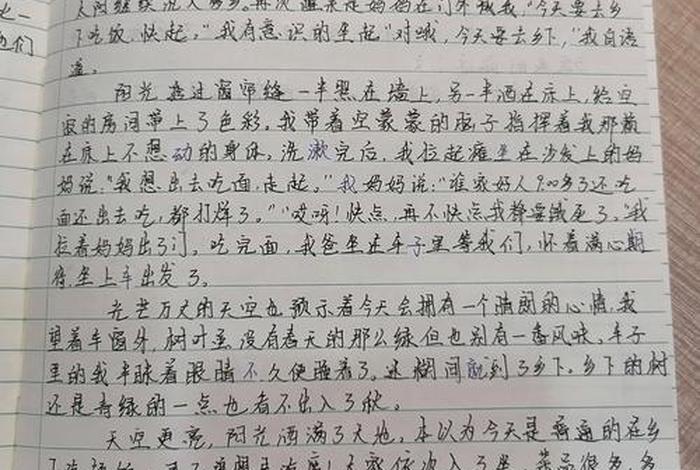 下吃饭,快起。"我有意识的坐起"对哦,今天要去乡下,"我自语
道。
阳光透过窗帘缝一半照在墙上,另一半洒在床上,给空
寂的房间带上了色彩。我带着空蒙蒙的脑子指挥着我那黏
在床上不想动的身体,洗漱完后,我拉起瘫坐在沙发上的妈
妈说:"我想出去吃面,走起。"我妈妈说:"谁家好人9:00多了还吃
面还出去吃,都打烊了。""哎呀!快点,再不快点我都要饿死了。"我
拉着妈妈出了门。吃完面,我爸坐在车子里等我们,怀着满心期
待,坐上车出发了。
光芒万丈的天空也预示着今天会拥有一个晴朗的心情,我
望着车窗外,树叶虽没有春天的那么绿但也别有一番风味。车子
里的我半眯着眼睛不久便睡着了。迷糊间就到了乡下。乡下的树
还是青绿的一点也看不出入了秋。
天空更亮,阳光洒满了大地,本以为今天是普通的在乡